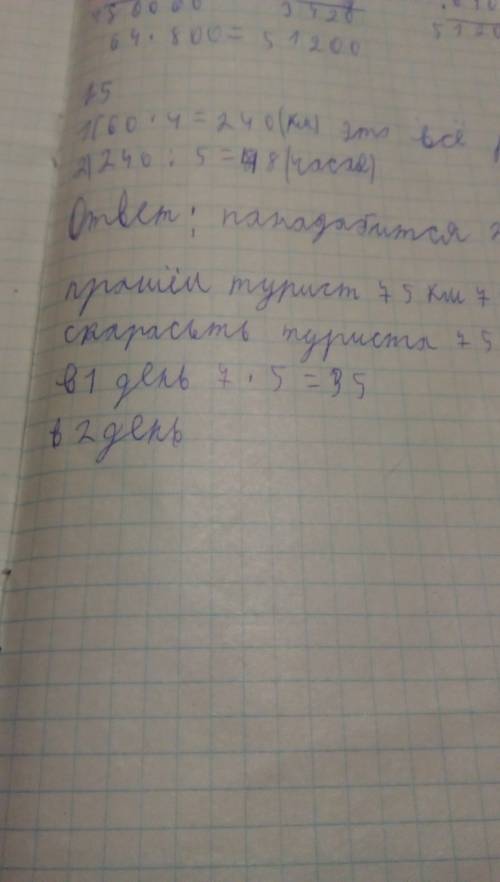 50000
3520
64 · 800 = 51200
5120
15
1) 60 · 4 = 240 (км) это всё
2) 240 : 5 = 48 (часов)
Ответ: панадабится
прашёл турист 75 км 7
скарасьть туриста 75
в 1 день 7 · 5 = 35
в 2 день